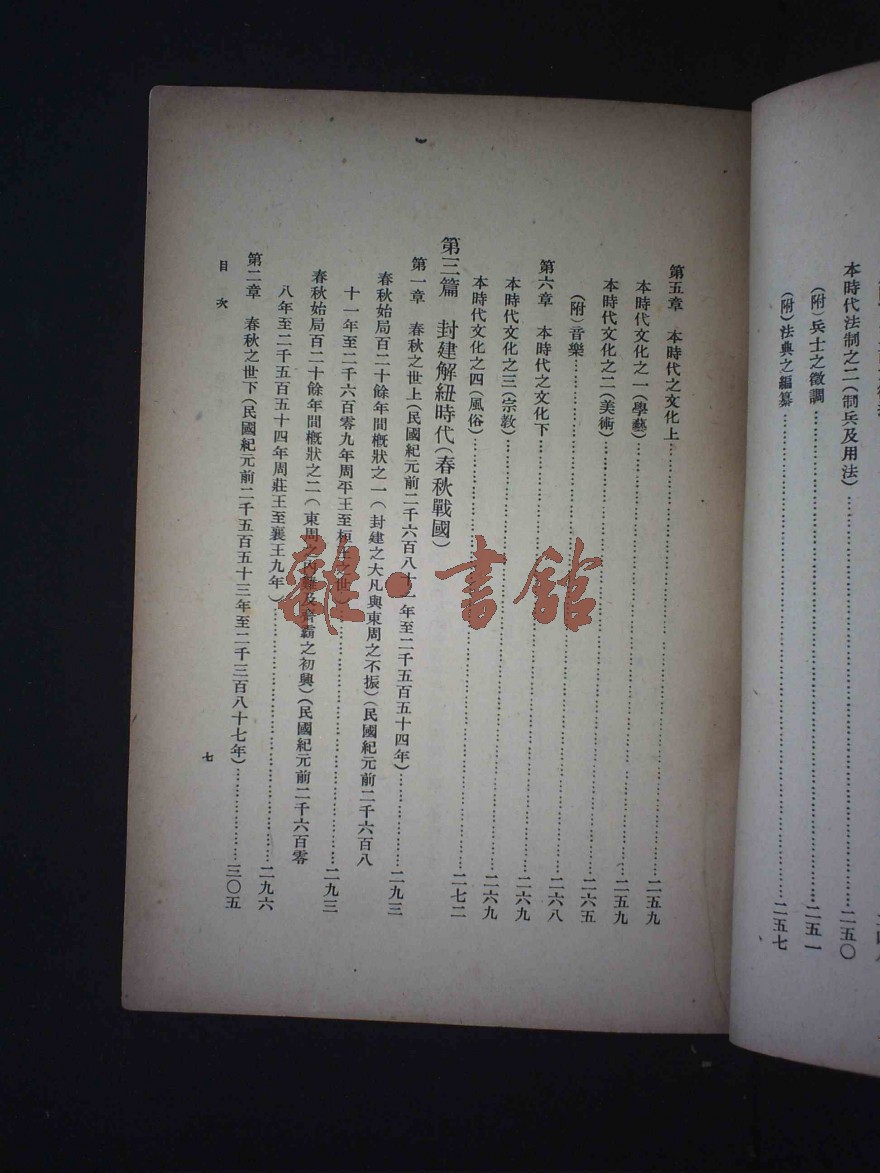 本時代法制之二(制兵及用法)……二五〇
(附)兵士之徵調……二五一
(附)法典之編纂……二五七
第五章　本時代之文化上……二五九
本時代文化之一(學藝)……二五九
本時代文化之二(美術)……二六五
(附)音樂……二六八
第六章　本時代之文化下……二六九
本時代文化之三(宗教)……二六九
本時代文化之四(風俗)……二七二
第三篇　封建解紐時代(春秋戰國)
第一章　春秋之世上(民國紀元前二千六百八十一年至二千五百五十四年)……二九三
春秋始局百二十餘年間概狀之一(封建之大凡與東周之不振)(民國紀元前二千六百八
十一年至二千六百零九年周平王至桓王之世)……二九三
春秋始局百二十餘年間概狀之二(東周之內難及齊霸之初興)(民國紀元前二千六百零
八年至二千五百五十四年周莊王至襄王九年)……二九六
第二章　春秋之世下(民國紀元前二千五百五十三年至二千三百八十七年)……三〇五
目次
七
雜·書館